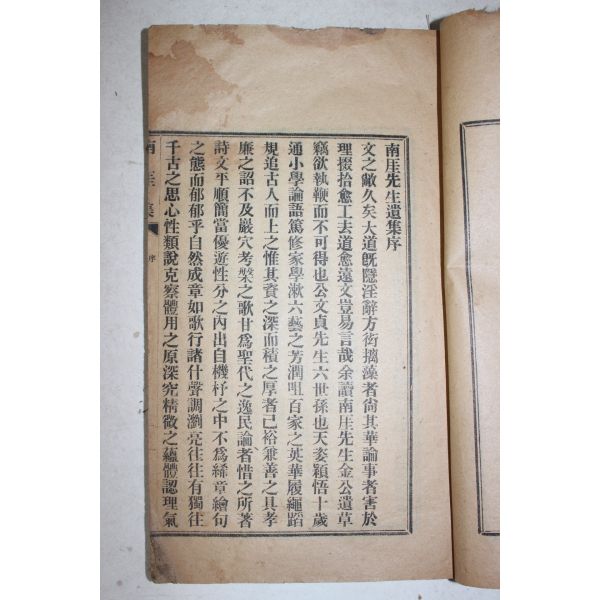 南厓先生遺集序
文之敝久矣大道旣隱淫辭方衒摛藻者尙其華論事者害於
理掇拾愈工去道愈遠文豈易言哉余讀南厓先生金公遺草
竊欲執鞭而不可得也公文貞先生六世孫也天姿穎悟十歲
通小學論語篤修家學漱六藝之芳潤咀百家之英華履繩蹈
規追古人而上之惟其資之深而積之厚者已裕兼善之具孝
廉之詔不及巖穴考槃之歌甘爲聖代之逸民論者惜之所著
詩文平順簡當優遊性分之內出自機杼之中不爲絺章繪句
之態而郁郁乎自然成章如歌行諸什聲調瀏亮往往有獨往
千古之思心性類說克察體用之原深究精微之蘊體認理氣
南厓集
序